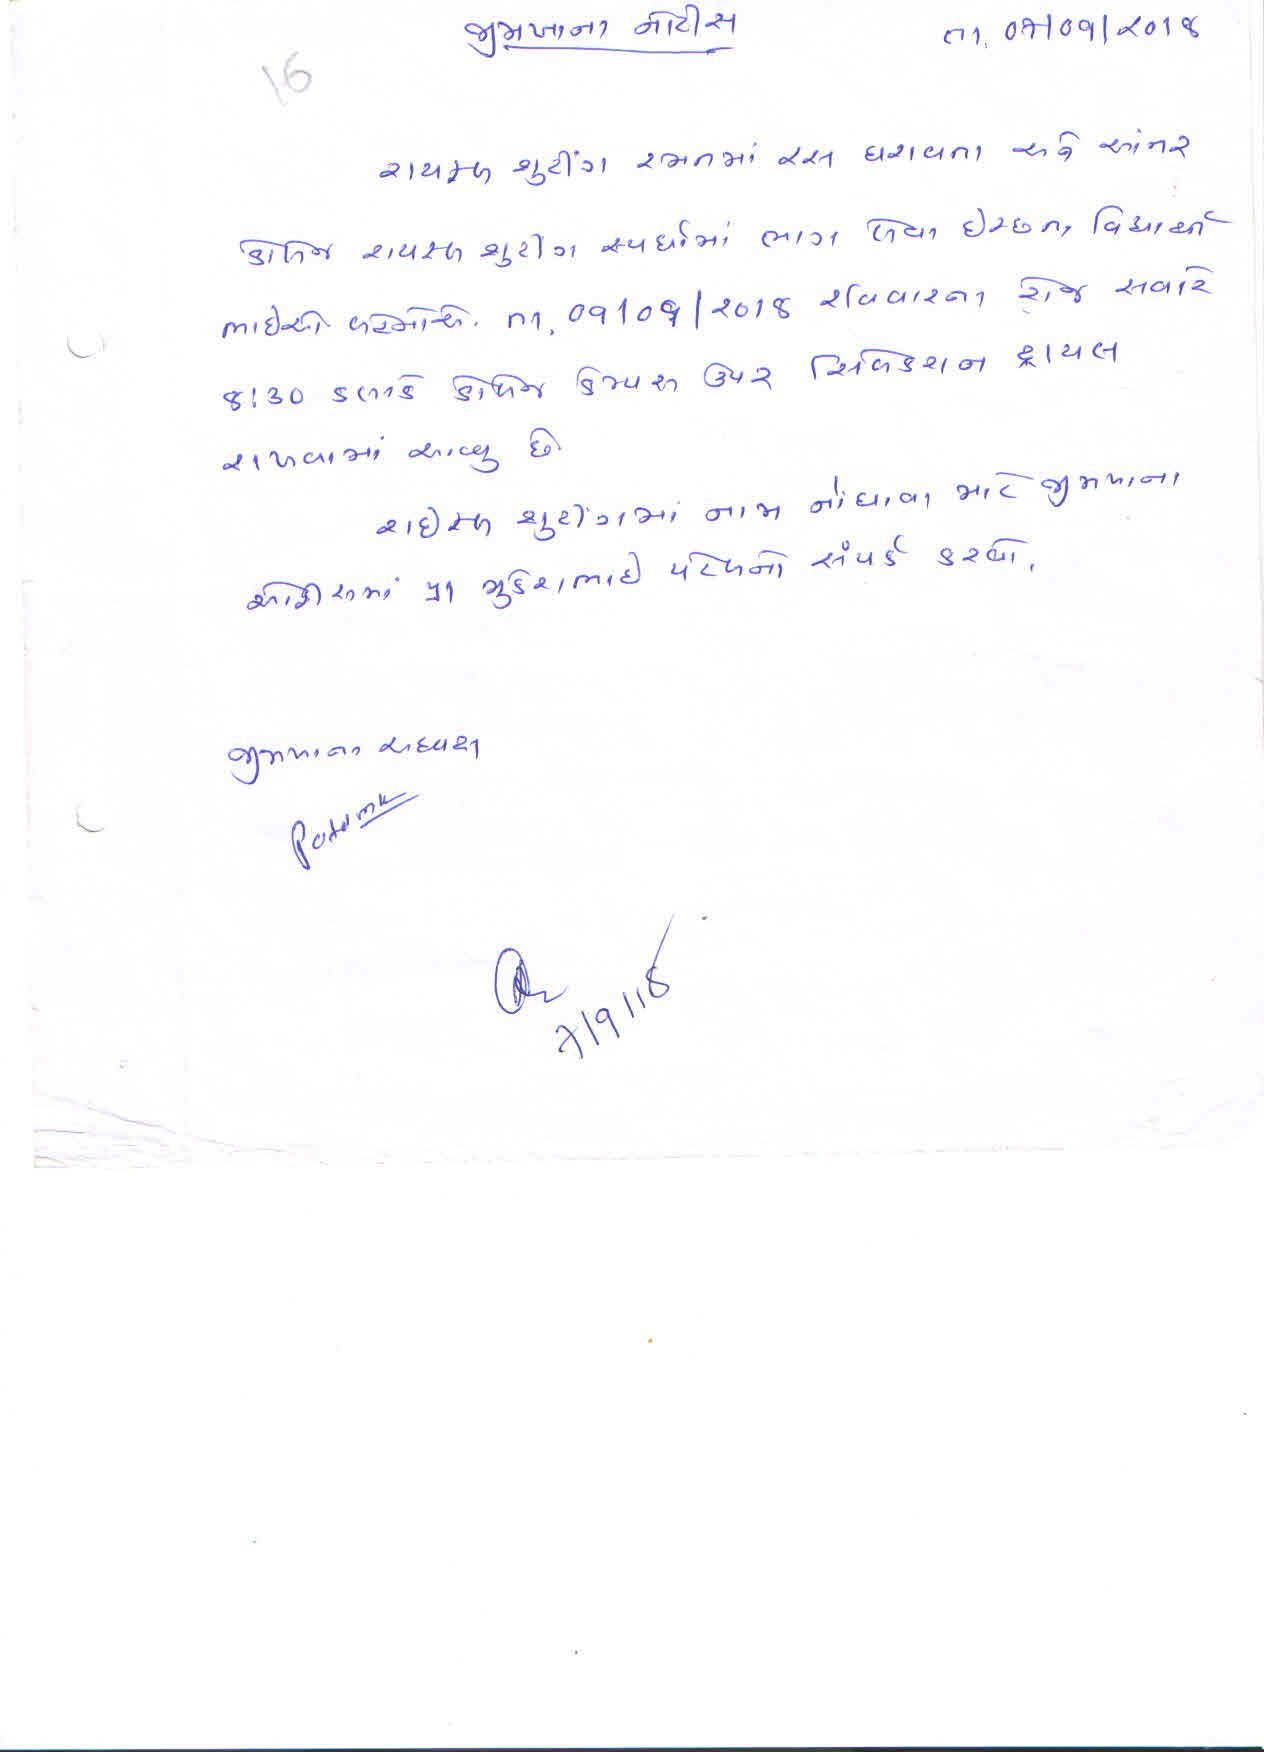 જીમખાના નોટીસ
તા. ૦૭/૦૯/૨૦૧૮
16
રાયફલ શુટીંગ રમતમાં રસ ધરાવતા અને આંતર
કોલેજ રાયફલ શુટીંગ સ્પર્ધામાં ભાગ લેવા ઈચ્છતા વિદ્યાર્થી
ભાઈઓ બહેનોએ. તા. ૦૯/૦૯/૨૦૧૮ રવિવારના રોજ સવારે
૮:૩૦ કલાકે કોલેજ કેમ્પસ ઉપર સિલેકશન ટ્રાયલ
રાખવામાં આવ્યુ છે.
રાઈફલ શુટીંગમાં નામ નોંધાવા માટે જીમખાના
ઓફીસમાં પ્રા મુકેશભાઈ પટેલનો સંપર્ક કરવો.
જીમખાના અધ્યક્ષ
Patel mk
7/9/18